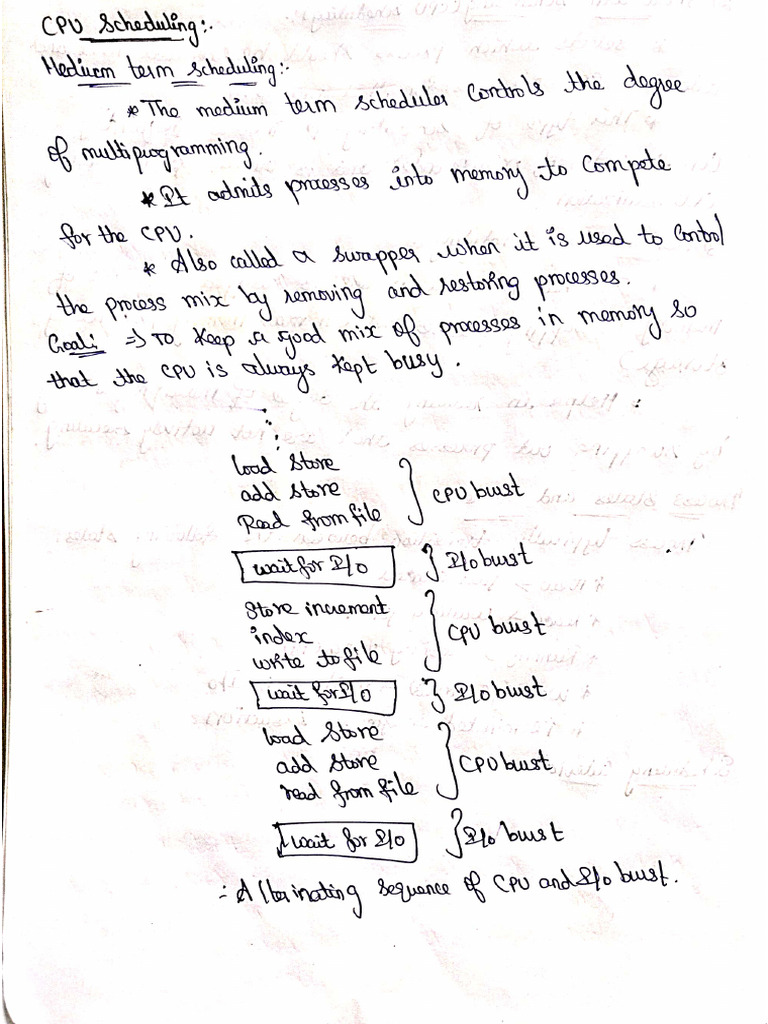 CPU Scheduling:-
Medium term scheduling:-
* The medium term scheduler Controls the degree
of multiprogramming.
* It admits processes into memory to Compete
for the CPU.
* Also called a swapper when it is used to Control
the process mix by removing and restoring processes.
Goal: => To keep a good mix of processes in memory so
that the CPU is always kept busy.
load Store
add Store
Read from file
CPU burst
wait for I/o
I/o burst
Store increment
index
write to file
CPU burst
wait for I/o
I/o burst
load Store
add Store
read from file
CPU burst
wait for I/o
I/o burst
:- Alterinating sequence of CPU and I/o burst.